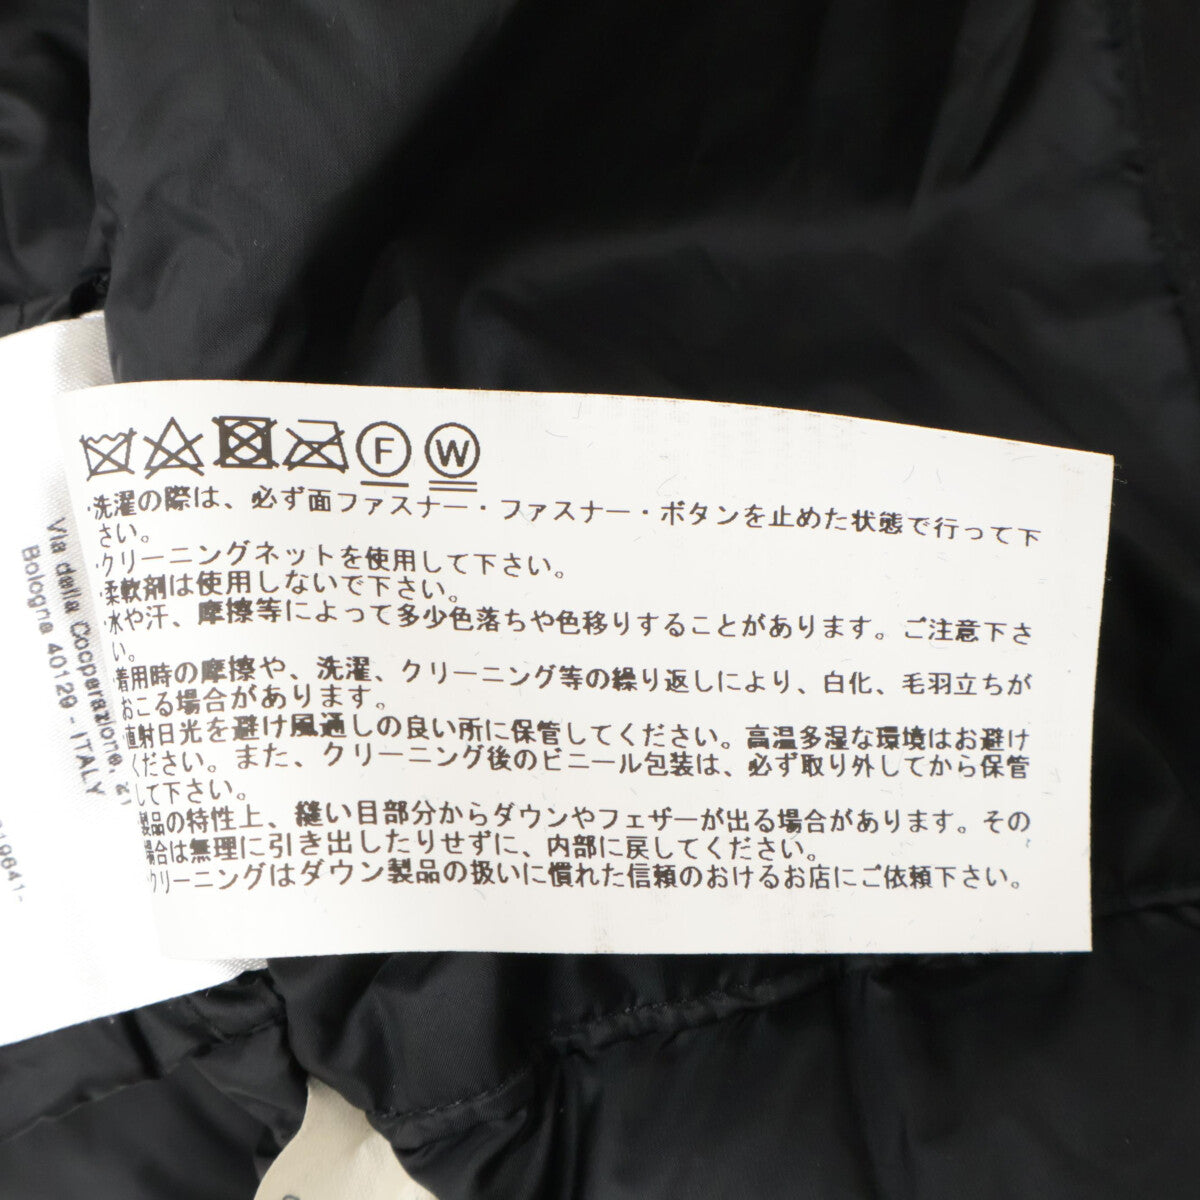 F W
・洗濯の際は、必ず面ファスナー・ファスナー・ボタンを止めた状態で行って下
さい。
・クリーニングネットを使用して下さい。
・柔軟剤は使用しないで下さい。
・水や汗、摩擦等によって多少色落ちや色移りすることがあります。ご注意下さ
い。
着用時の摩擦や、洗濯、クリーニング等の繰り返しにより、白化、毛羽立ちが
おこる場合があります。
直射日光を避け風通しの良い所に保管してください。高温多湿な環境はお避け
ください。また、クリーニング後のビニール包装は、必ず取り外してから保管
して下さい。
製品の特性上、縫い目部分からダウンやフェザーが出る場合があります。その
場合は無理に引き出したりせずに、内部に戻してください。
クリーニングはダウン製品の扱いに慣れた信頼のおけるお店にご依頼下さい。
Via della Cooperazione, 21
Bologna 40129 - ITALY